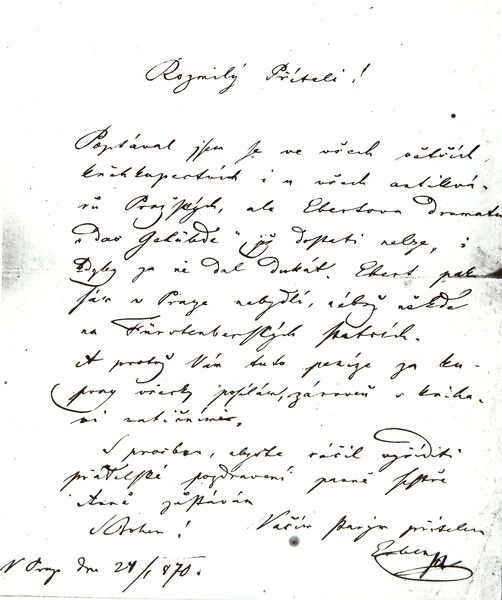 Rozmilý Příteli!
Poptával jsem se ve všech větších
kněhkupectvích i u všech antikvá-
rů Pražských, ale Ebertova dramatu
„das Gelübde“ již dostati nelze, i
kdyby za ně dal dukát. Ebert pak
sám v Praze nebydlí, nébrž někde
na Fürstenberských statcích.
A protož Vám tuto peníze za ku-
py všecky posílám, zároveň s kniha-
mi
S prosbou, abyste ráčil vyříditi
přátelské pozdravení panně sestře
Anně zůstávám
S Bohem! Vaším starým přítelem
Erben
V Praze dne 24/1 870.